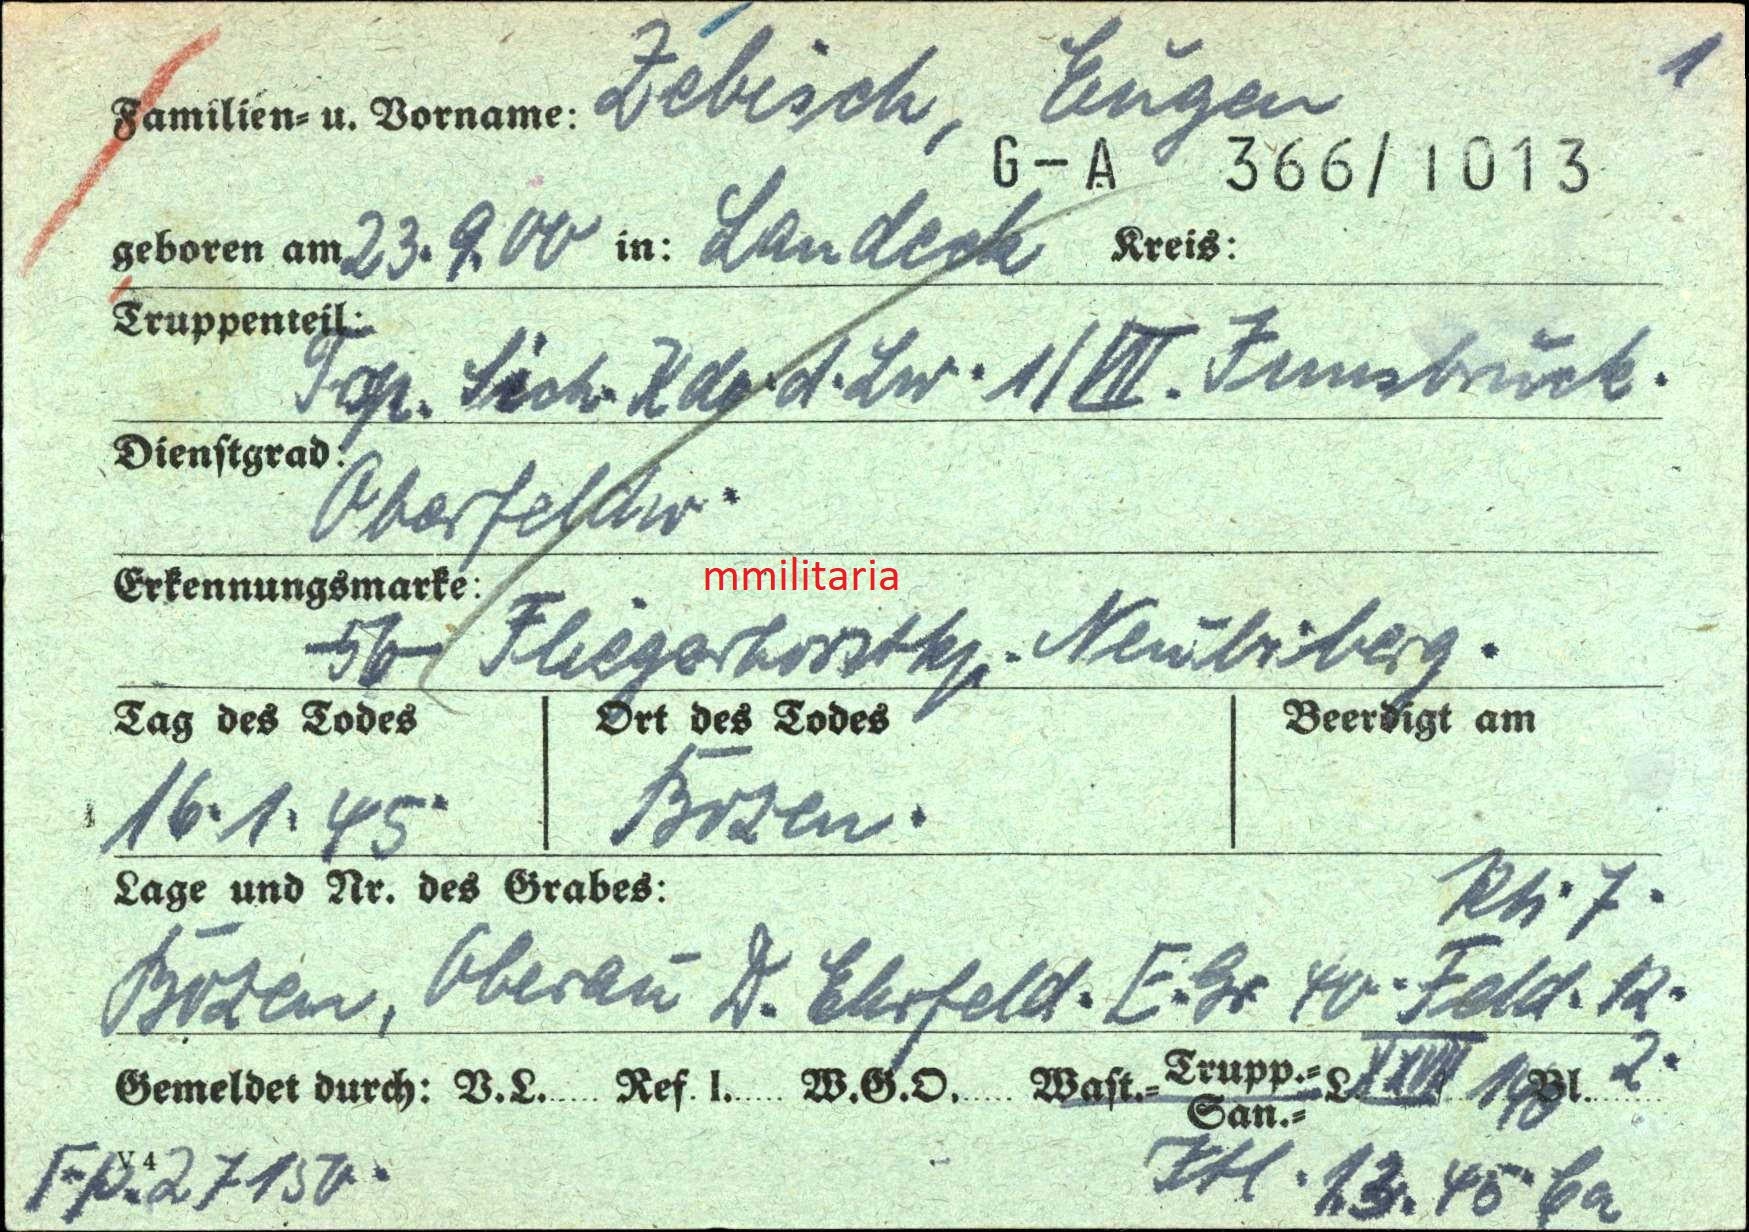 1
Familien- u. Vorname: Zebisch, Eugen
G-A 366/1013
geboren am 23.9.00 in: Landeck Kreis:
Truppenteil:
Trsp. Sich. Kdo. d. Lw. 1/VII. Innsbruck.
Dienstgrad:
Oberfeldw.
Erkennungsmarke:
mmilitaria
-56- Fliegerhorstkp. Neubiberg.
Tag des Todes Ort des Todes Beerdigt am
16.1.45 Bozen.
Lage und Nr. des Grabes: Rh. 7.
Bozen, Oberau D. Ehrfeld. E. Gr 40. Feld. 12.
Gemeldet durch: V.L..... Ref. I..... W.G.O..... Wast.- Trupp.- L XXVII 190 Bl. 2.
San.-
V 4
Fp. 27150. Ital. 1.3. 45